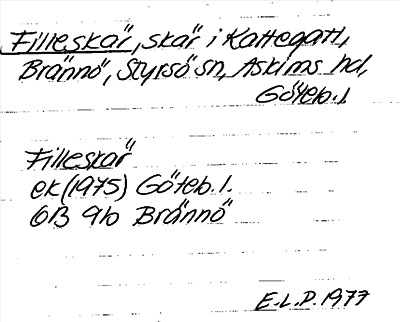 Filleskär, skär i Kattegatt,
Brännö, Styrsö sn, Askims hd,
Göteb. l
Filleskär
ek (1975) Göteb. l.
6B 9b Brännö
E.L.P. 1977